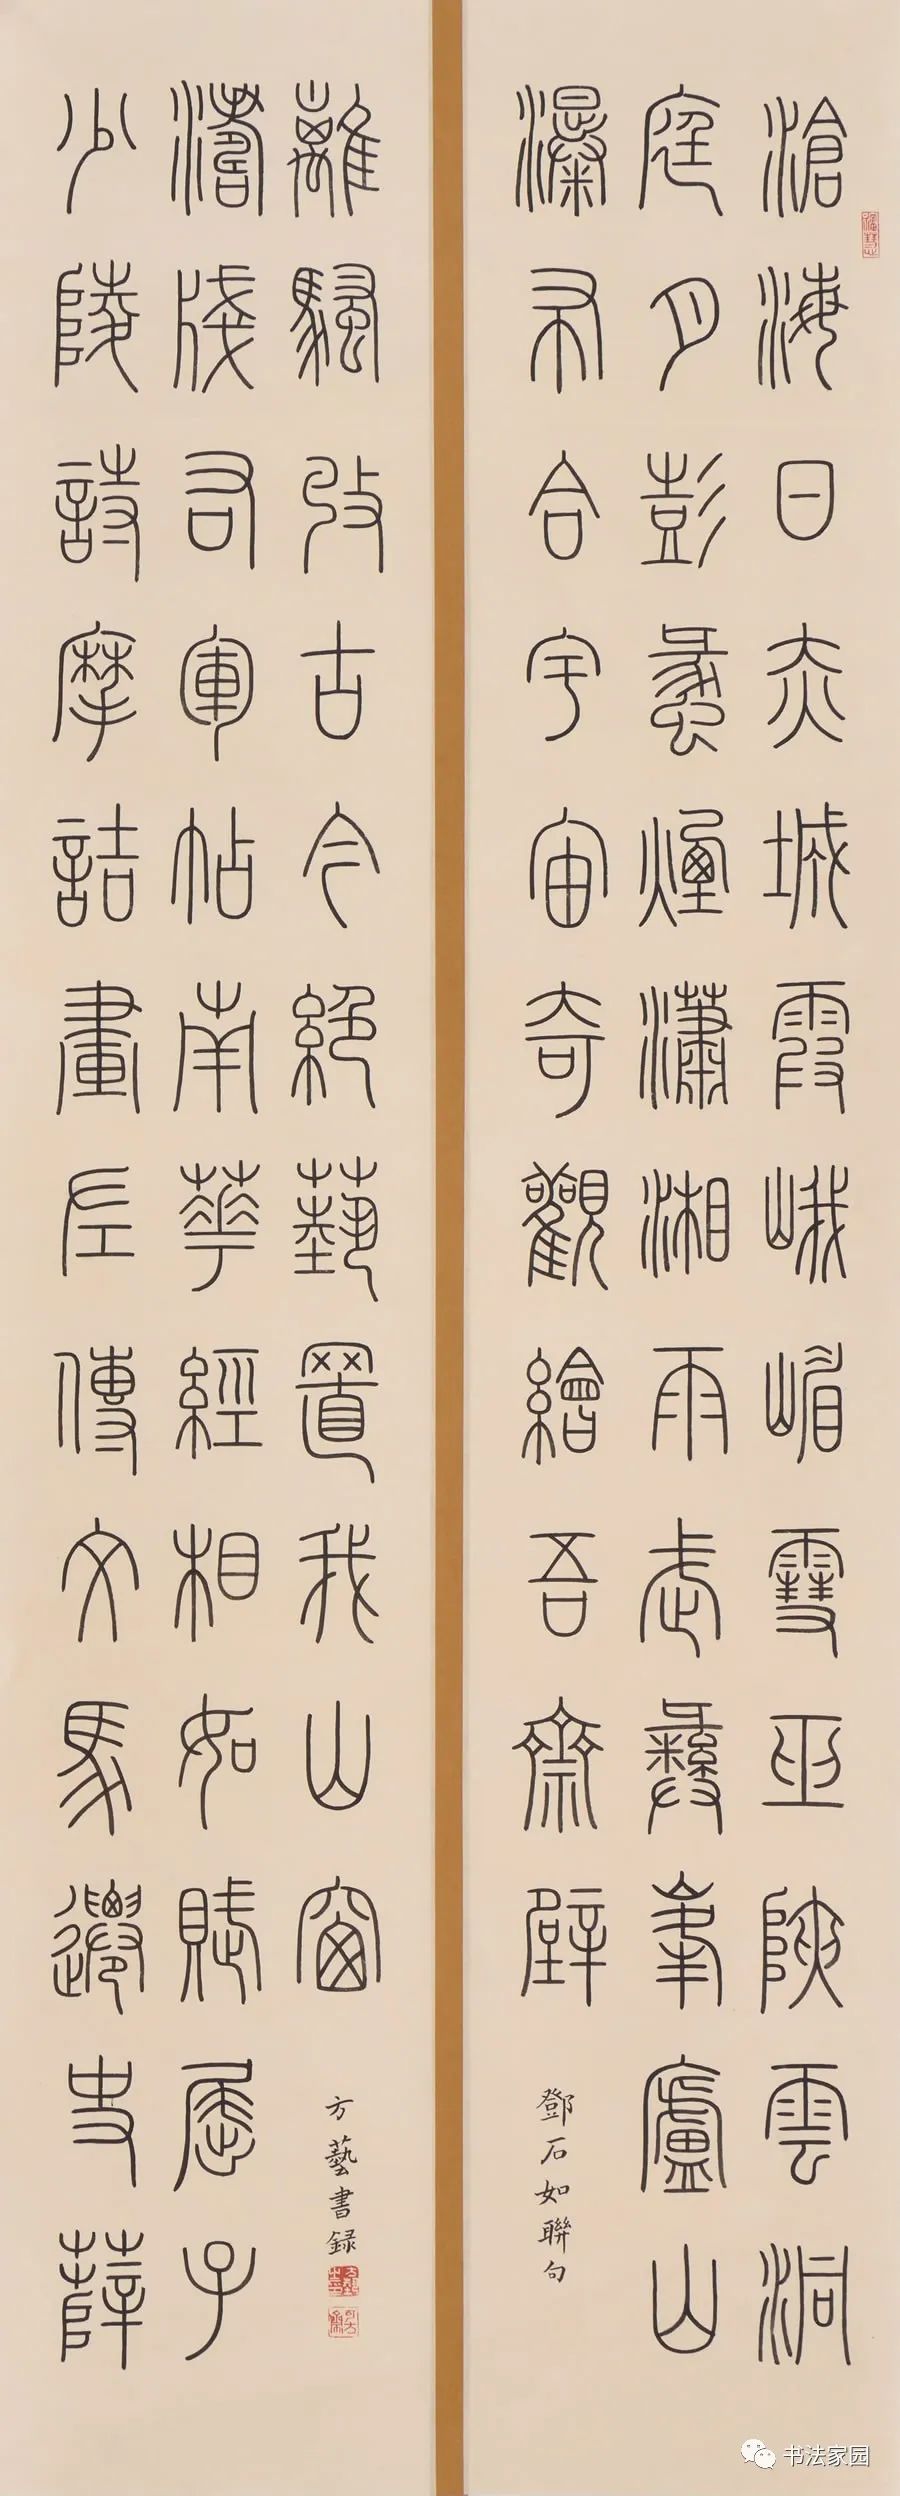 滄海日赤城霞峨嵋雪巫陜雲洞
庭月彭蠡煙瀟湘雨武彝峯廬山
瀑布合宇宙奇觀繪吾齋壁
鄧石如聯句
少陵詩摩詰畫左傳文馬遷史薛
濤牋右軍帖南華經相如賦屈子
離騷收古今絕藝置我山窗
方藝書録
书法家园